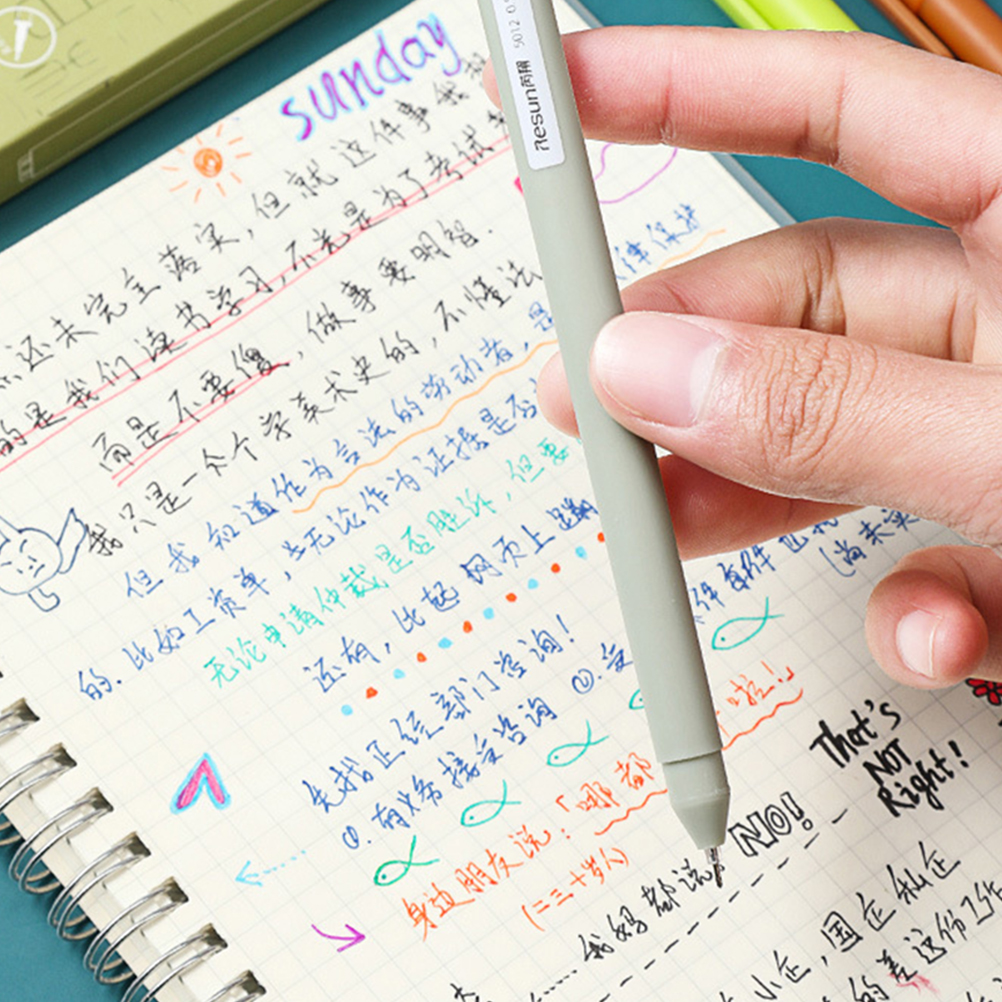 sunday
Resun芮翔 5012
还未完全落实,但就这件事我
的是我们读书学习,不光是为了考试
而是不要傻,做事要明智.
我只是一个学美术史的,不懂法
但我知道作为合法的劳动者,是 保护
的.比如工资单,无论作为证据是否
无论申请仲裁是否胜诉,但要
还有,比起网页上
先找正经部门咨询!
①.有义务接受咨询 ②.
身边朋友说:「哪都 啦!」
(二三十岁人)
That's
NOT
Right!
我妈都说: NO!
小企,国企私企
的差这份工作